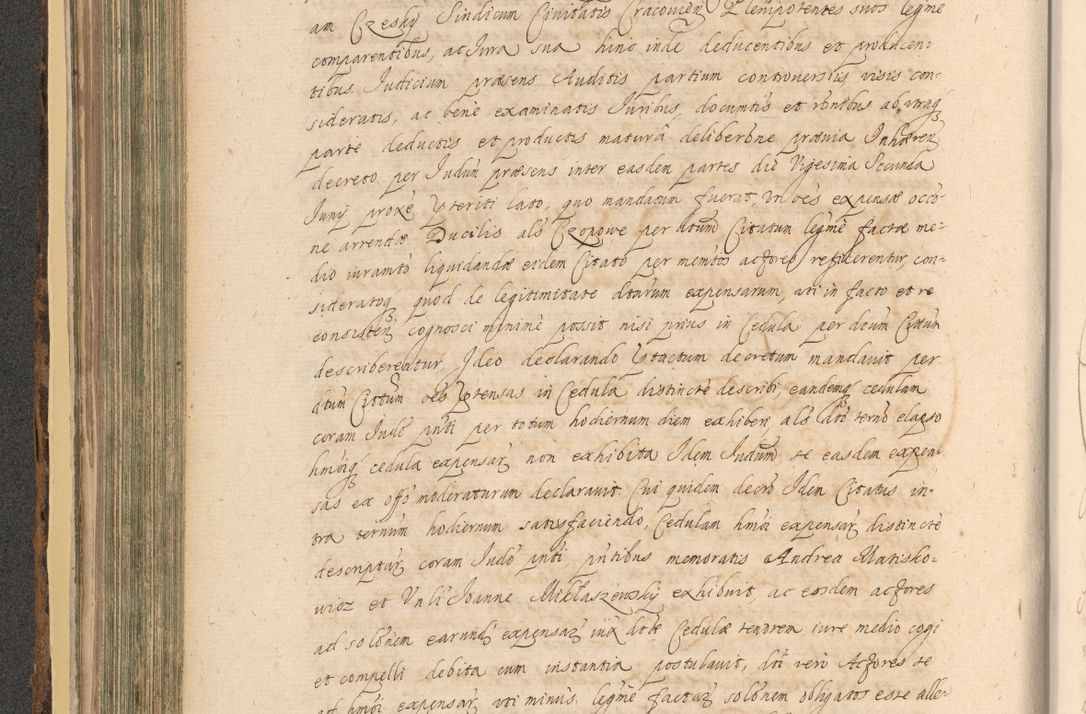 am Czeskÿ Sindicum Civitatis Cracovien Plenipotentes suos legme
comparentibus, ac Jura sua hinc inde deducentibus et producen-
tibus. Judicium præsens Auditis partium controversiis visis con-
sideratis, ac bene examinatis Juribus, documtis et rõnibus ab utraq
parte deductis et productis matura deliberõne prævia Inhæren
decreto per Judm præsens inter easdem partes die Vigesima Secunda
Junÿ proxe præteriti lato, quo mandatum fuerat, ut oes expensæ acco
ne arrendæ Ducilis als Czopowe per dtum Citatum legme factæ me-
dio iuramto liquidandæ eidem Citato per memtos actores reficerentur, con-
sideratoq quod de legitimitate dtarum expensarum, uti in facto et re
consisten cognosci minime possit nisi prius in Cedula per dtum Cittum
describerentur Ideo declarando pretactum decretum mandavit per
dtum Cittum oes expensas in Cedula distincte describi, eandemq cedulam
coram Judo pnti per totum hodiernum diem exhiberi als dto termo elapso
hmoiq cedula expensar non exhibita Idem Judum se easdem expen-
sas ex offo moderaturum declaravit Cui quidem decro Idem Citatus in-
tra termum hodiernum satisfaciendo, Cedulam hmoi expensar distincte
descriptar coram Judo pnti, pntibus memoratis Andrea Matisko-
wicz et Vnli Joanne Miklaszewskÿ exhibuit, ac eosdem actores
ad solonem earund expensar iux dtæ Cedulæ tenorem iure medio cogi
et compelli debita cum instantia postulavit, dti vero Actores se
ad hmoi expensar uti minus legme factar solonem obligatos esse alle-